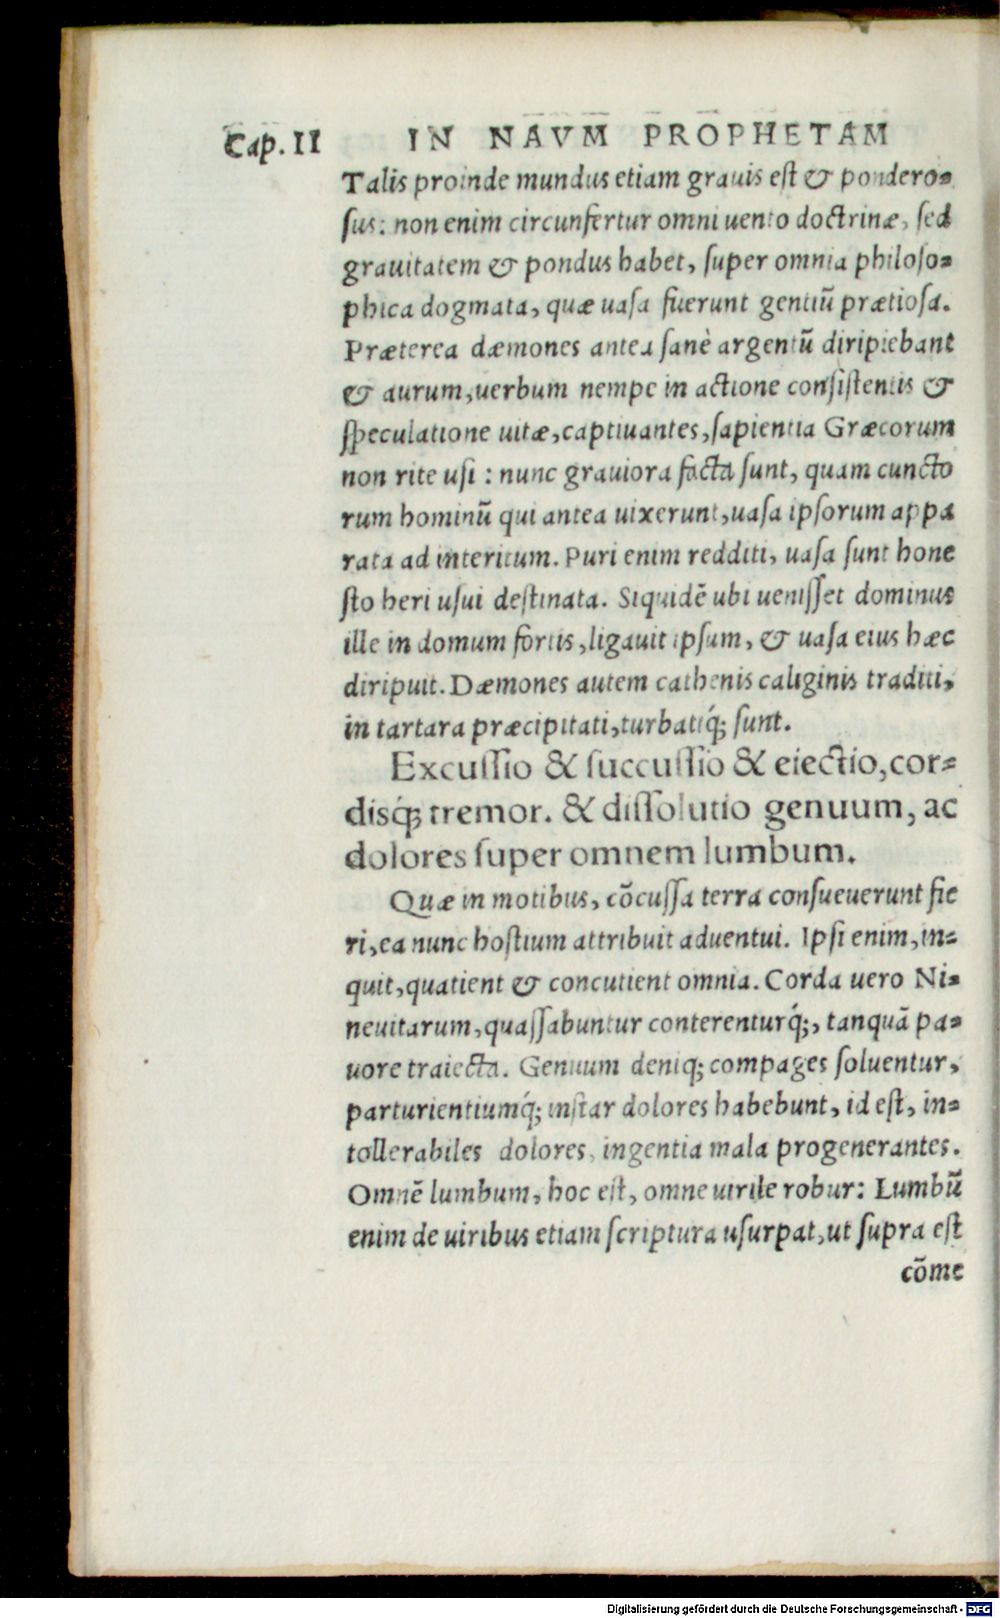 Cap. II IN NAVM PROPHETAM
Talis proinde mundus etiam grauis est & pondero=
sus: non enim circunfertur omni uento doctrinæ, sed
grauitatem & pondus habet, super omnia philoso=
phica dogmata, quæ uasa fuerunt gentiū prætiosa.
Præterea dæmones antea sanè argentū diripiebant
& aurum,uerbum nempe in actione consistentis &
speculatione uitæ,captiuantes,sapientia Græcorum
non rite usi : nunc grauiora facta sunt, quam cuncto
rum hominū qui antea uixerunt,uasa ipsorum appa
rata ad interitum. Puri enim redditi, uasa sunt hone
sto heri usui destinata. Siquidē ubi uenisset dominus
ille in domum fortis,ligauit ipsum, & uasa eius hæc
diripuit. Dæmones autem cathenis caliginis traditi,
in tartara præcipitati,turbatiq́; sunt.
Excussio & succussio & eiectio,cor=
disq́; tremor. & dissolutio genuum, ac
dolores super omnem lumbum.
Quæ in motibus, cōcussa terra consueuerunt fie
ri,ea nunc hostium attribuit aduentui. Ipsi enim,in=
quit,quatient & concutient omnia. Corda uero Ni=
neuitarum,quassabuntur conterenturq́;, tanquā pa=
uore traiecta. Genuum deniq; compages soluentur,
parturientiumq́; instar dolores habebunt, id est, in=
tollerabiles dolores, ingentia mala progenerantes.
Omnē lumbum, hoc est, omne uirile robur: Lumbū
enim de uiribus etiam scriptura usurpat,ut supra est
cōme
Digitalisierung gefördert durch die Deutsche Forschungsgemeinschaft - DFG